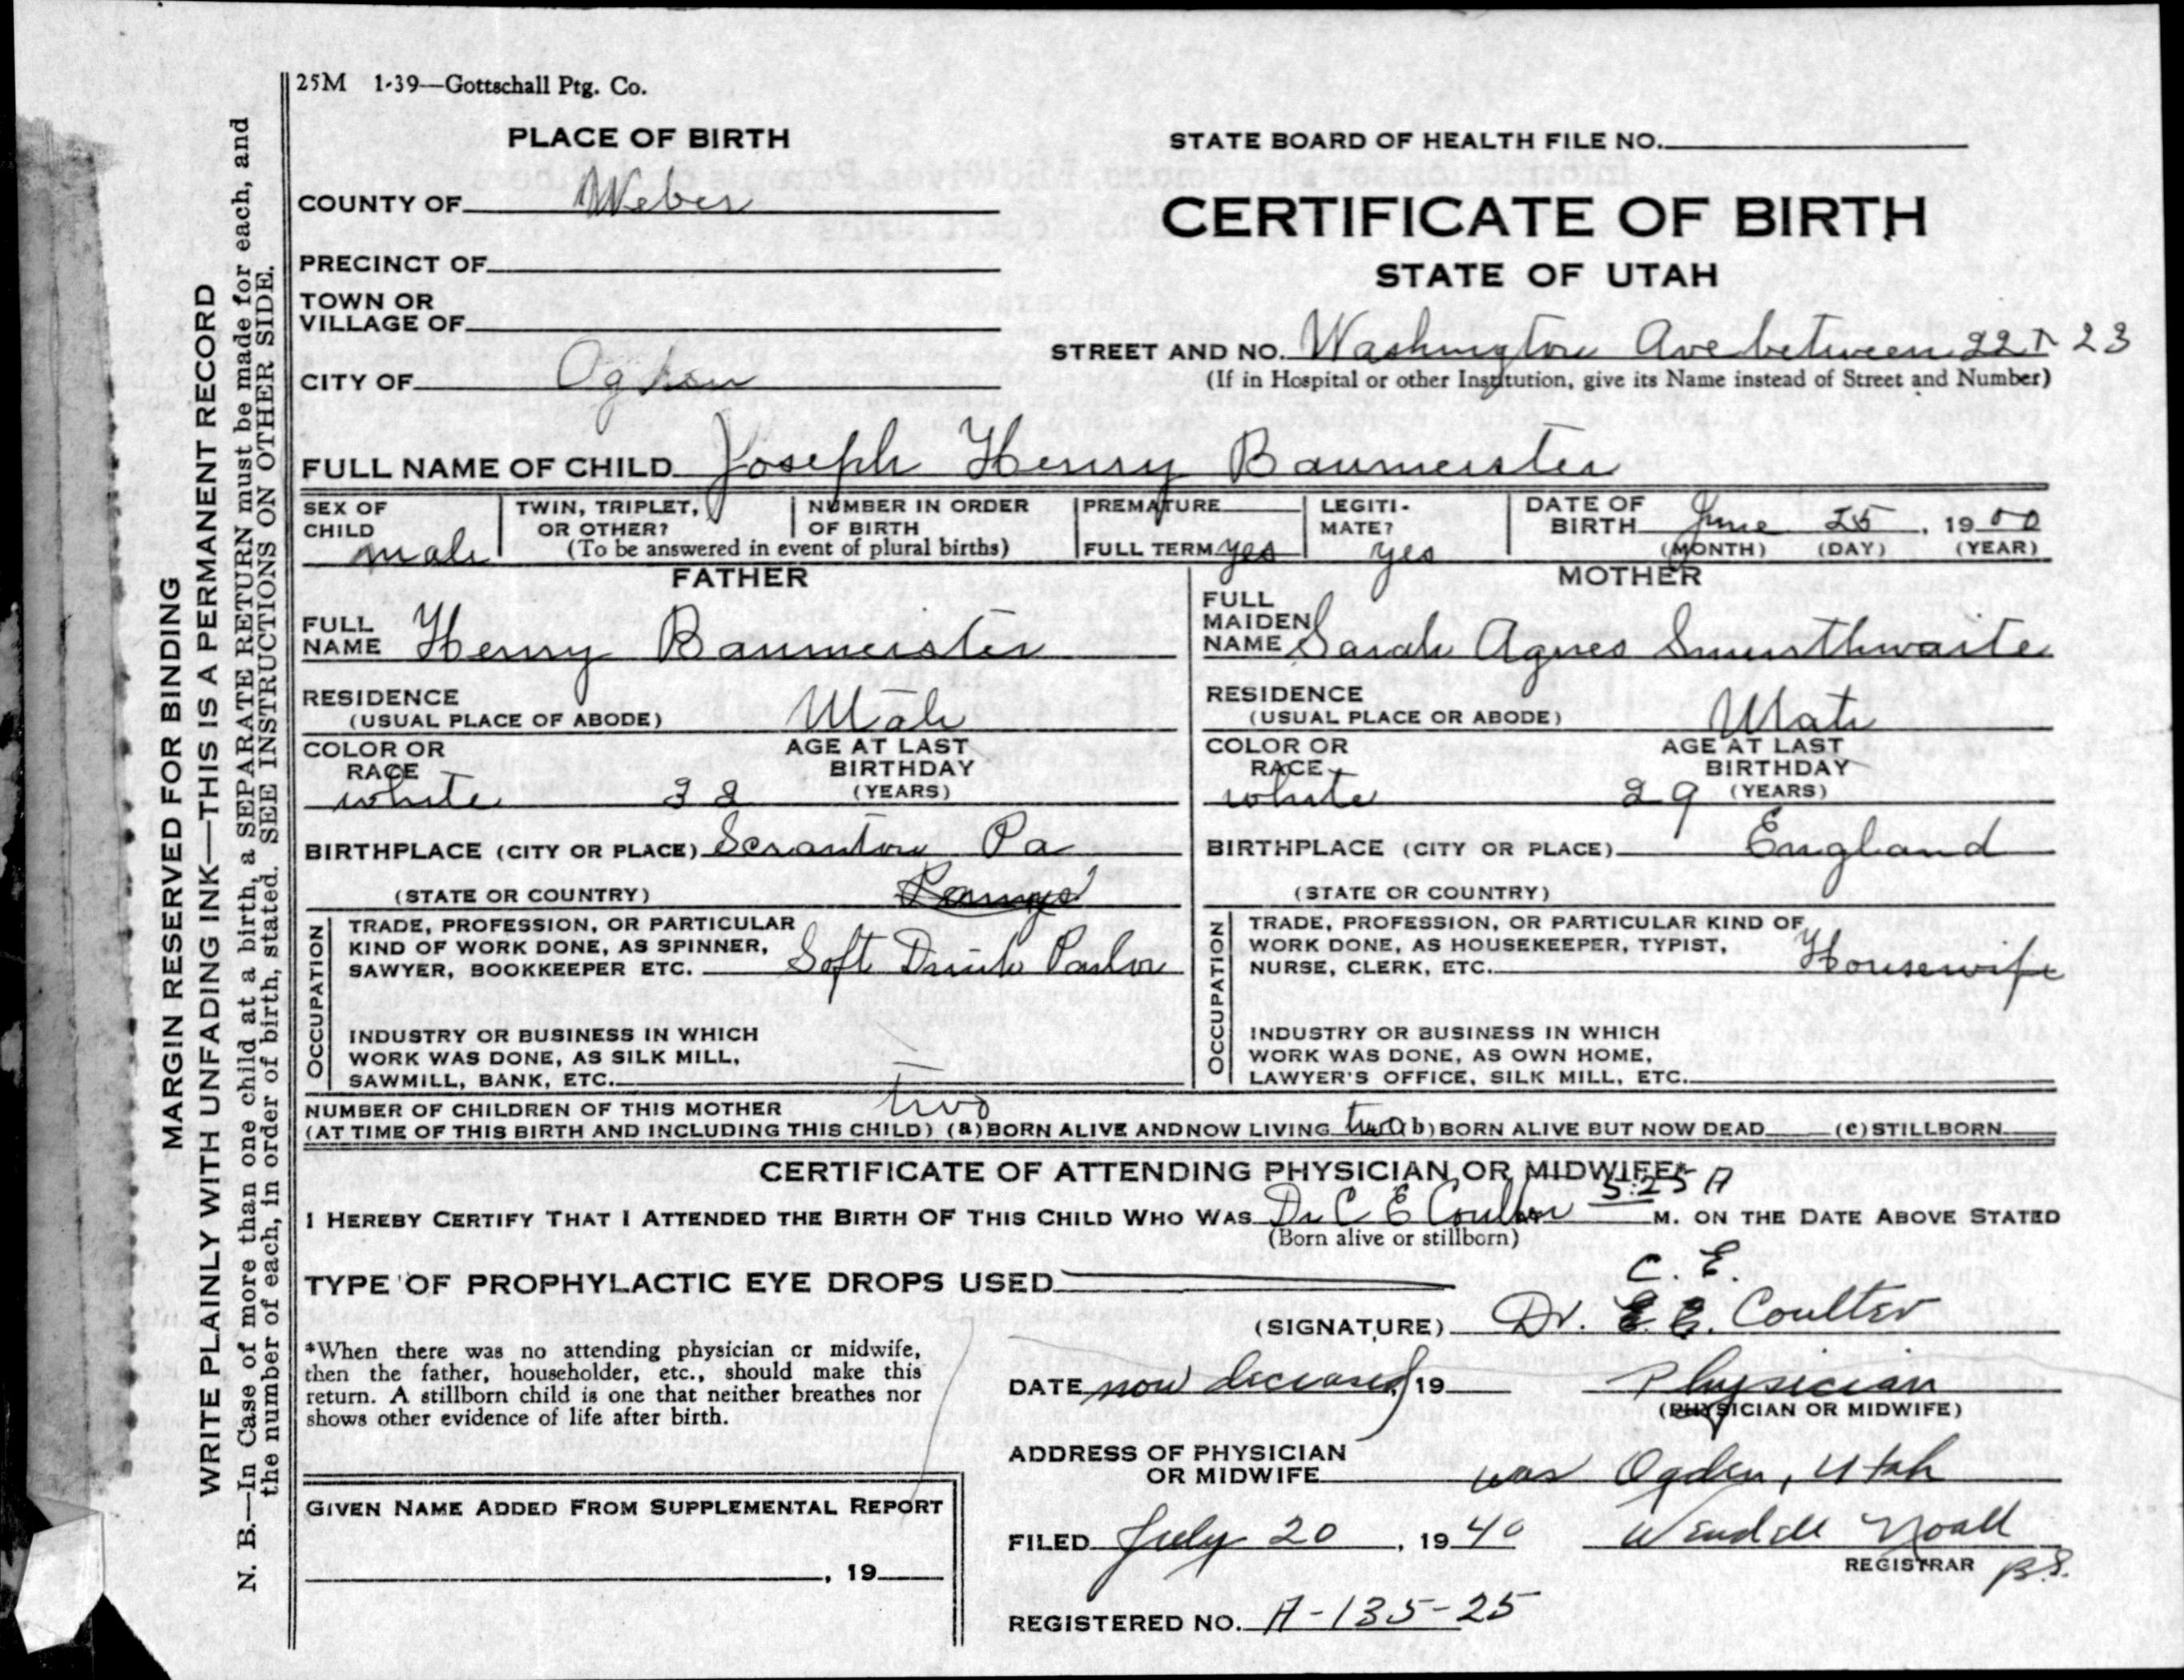 25M 1-39—Gottschall Ptg. Co.
PLACE OF BIRTH
STATE BOARD OF HEALTH FILE NO.
COUNTY OF Weber
CERTIFICATE OF BIRTH
PRECINCT OF
STATE OF UTAH
TOWN OR
VILLAGE OF
STREET AND NO. Washington Ave between 22 & 23
(If in Hospital or other Institution, give its Name instead of Street and Number)
CITY OF Ogden
FULL NAME OF CHILD Joseph Henry Baumeister
SEX OF
CHILD male
TWIN, TRIPLET,
OR OTHER?
NUMBER IN ORDER
OF BIRTH
(To be answered in event of plural births)
PREMATURE
FULL TERM yes
LEGITI-
MATE?
yes
DATE OF
BIRTH June 25, 1900
(MONTH) (DAY) (YEAR)
FATHER
FULL
NAME Henry Baumeister
RESIDENCE
(USUAL PLACE OF ABODE) Utah
COLOR OR
RACE
white
AGE AT LAST
BIRTHDAY
32 (YEARS)
BIRTHPLACE (CITY OR PLACE) Scranton Pa
(STATE OR COUNTRY)
OCCUPATION
TRADE, PROFESSION, OR PARTICULAR
KIND OF WORK DONE, AS SPINNER,
SAWYER, BOOKKEEPER ETC. Soft Drink Parlor
INDUSTRY OR BUSINESS IN WHICH
WORK WAS DONE, AS SILK MILL,
SAWMILL, BANK, ETC.
MOTHER
FULL
MAIDEN
NAME Sarah Agnes Smurthwaite
RESIDENCE
(USUAL PLACE OR ABODE) Utah
COLOR OR
RACE
white
AGE AT LAST
BIRTHDAY
29 (YEARS)
BIRTHPLACE (CITY OR PLACE) England
(STATE OR COUNTRY)
OCCUPATION
TRADE, PROFESSION, OR PARTICULAR KIND OF
WORK DONE, AS HOUSEKEEPER, TYPIST,
NURSE, CLERK, ETC. Housewife
INDUSTRY OR BUSINESS IN WHICH
WORK WAS DONE, AS OWN HOME,
LAWYER'S OFFICE, SILK MILL, ETC.
NUMBER OF CHILDREN OF THIS MOTHER two
(AT TIME OF THIS BIRTH AND INCLUDING THIS CHILD) (a) BORN ALIVE AND NOW LIVING two (b) BORN ALIVE BUT NOW DEAD (c) STILLBORN
CERTIFICATE OF ATTENDING PHYSICIAN OR MIDWIFE*
I HEREBY CERTIFY THAT I ATTENDED THE BIRTH OF THIS CHILD WHO WAS Dr C E Coulter 5:25 A M. ON THE DATE ABOVE STATED
(Born alive or stillborn)
TYPE OF PROPHYLACTIC EYE DROPS USED
C. E.
(SIGNATURE) Dr. E. E. Coulter
*When there was no attending physician or midwife,
then the father, householder, etc., should make this
return. A stillborn child is one that neither breathes nor
shows other evidence of life after birth.
DATE now deceased 19 Physician
(PHYSICIAN OR MIDWIFE)
ADDRESS OF PHYSICIAN
OR MIDWIFE was Ogden, Utah
GIVEN NAME ADDED FROM SUPPLEMENTAL REPORT
, 19
FILED July 20, 1940 Wendell Noall
REGISTRAR B.S.
REGISTERED NO. A-135-25
MARGIN RESERVED FOR BINDING
WRITE PLAINLY WITH UNFADING INK—THIS IS A PERMANENT RECORD
N. B.—In Case of more than one child at a birth, a SEPARATE RETURN must be made for each, and
the number of each, in order of birth, stated. SEE INSTRUCTIONS ON OTHER SIDE.